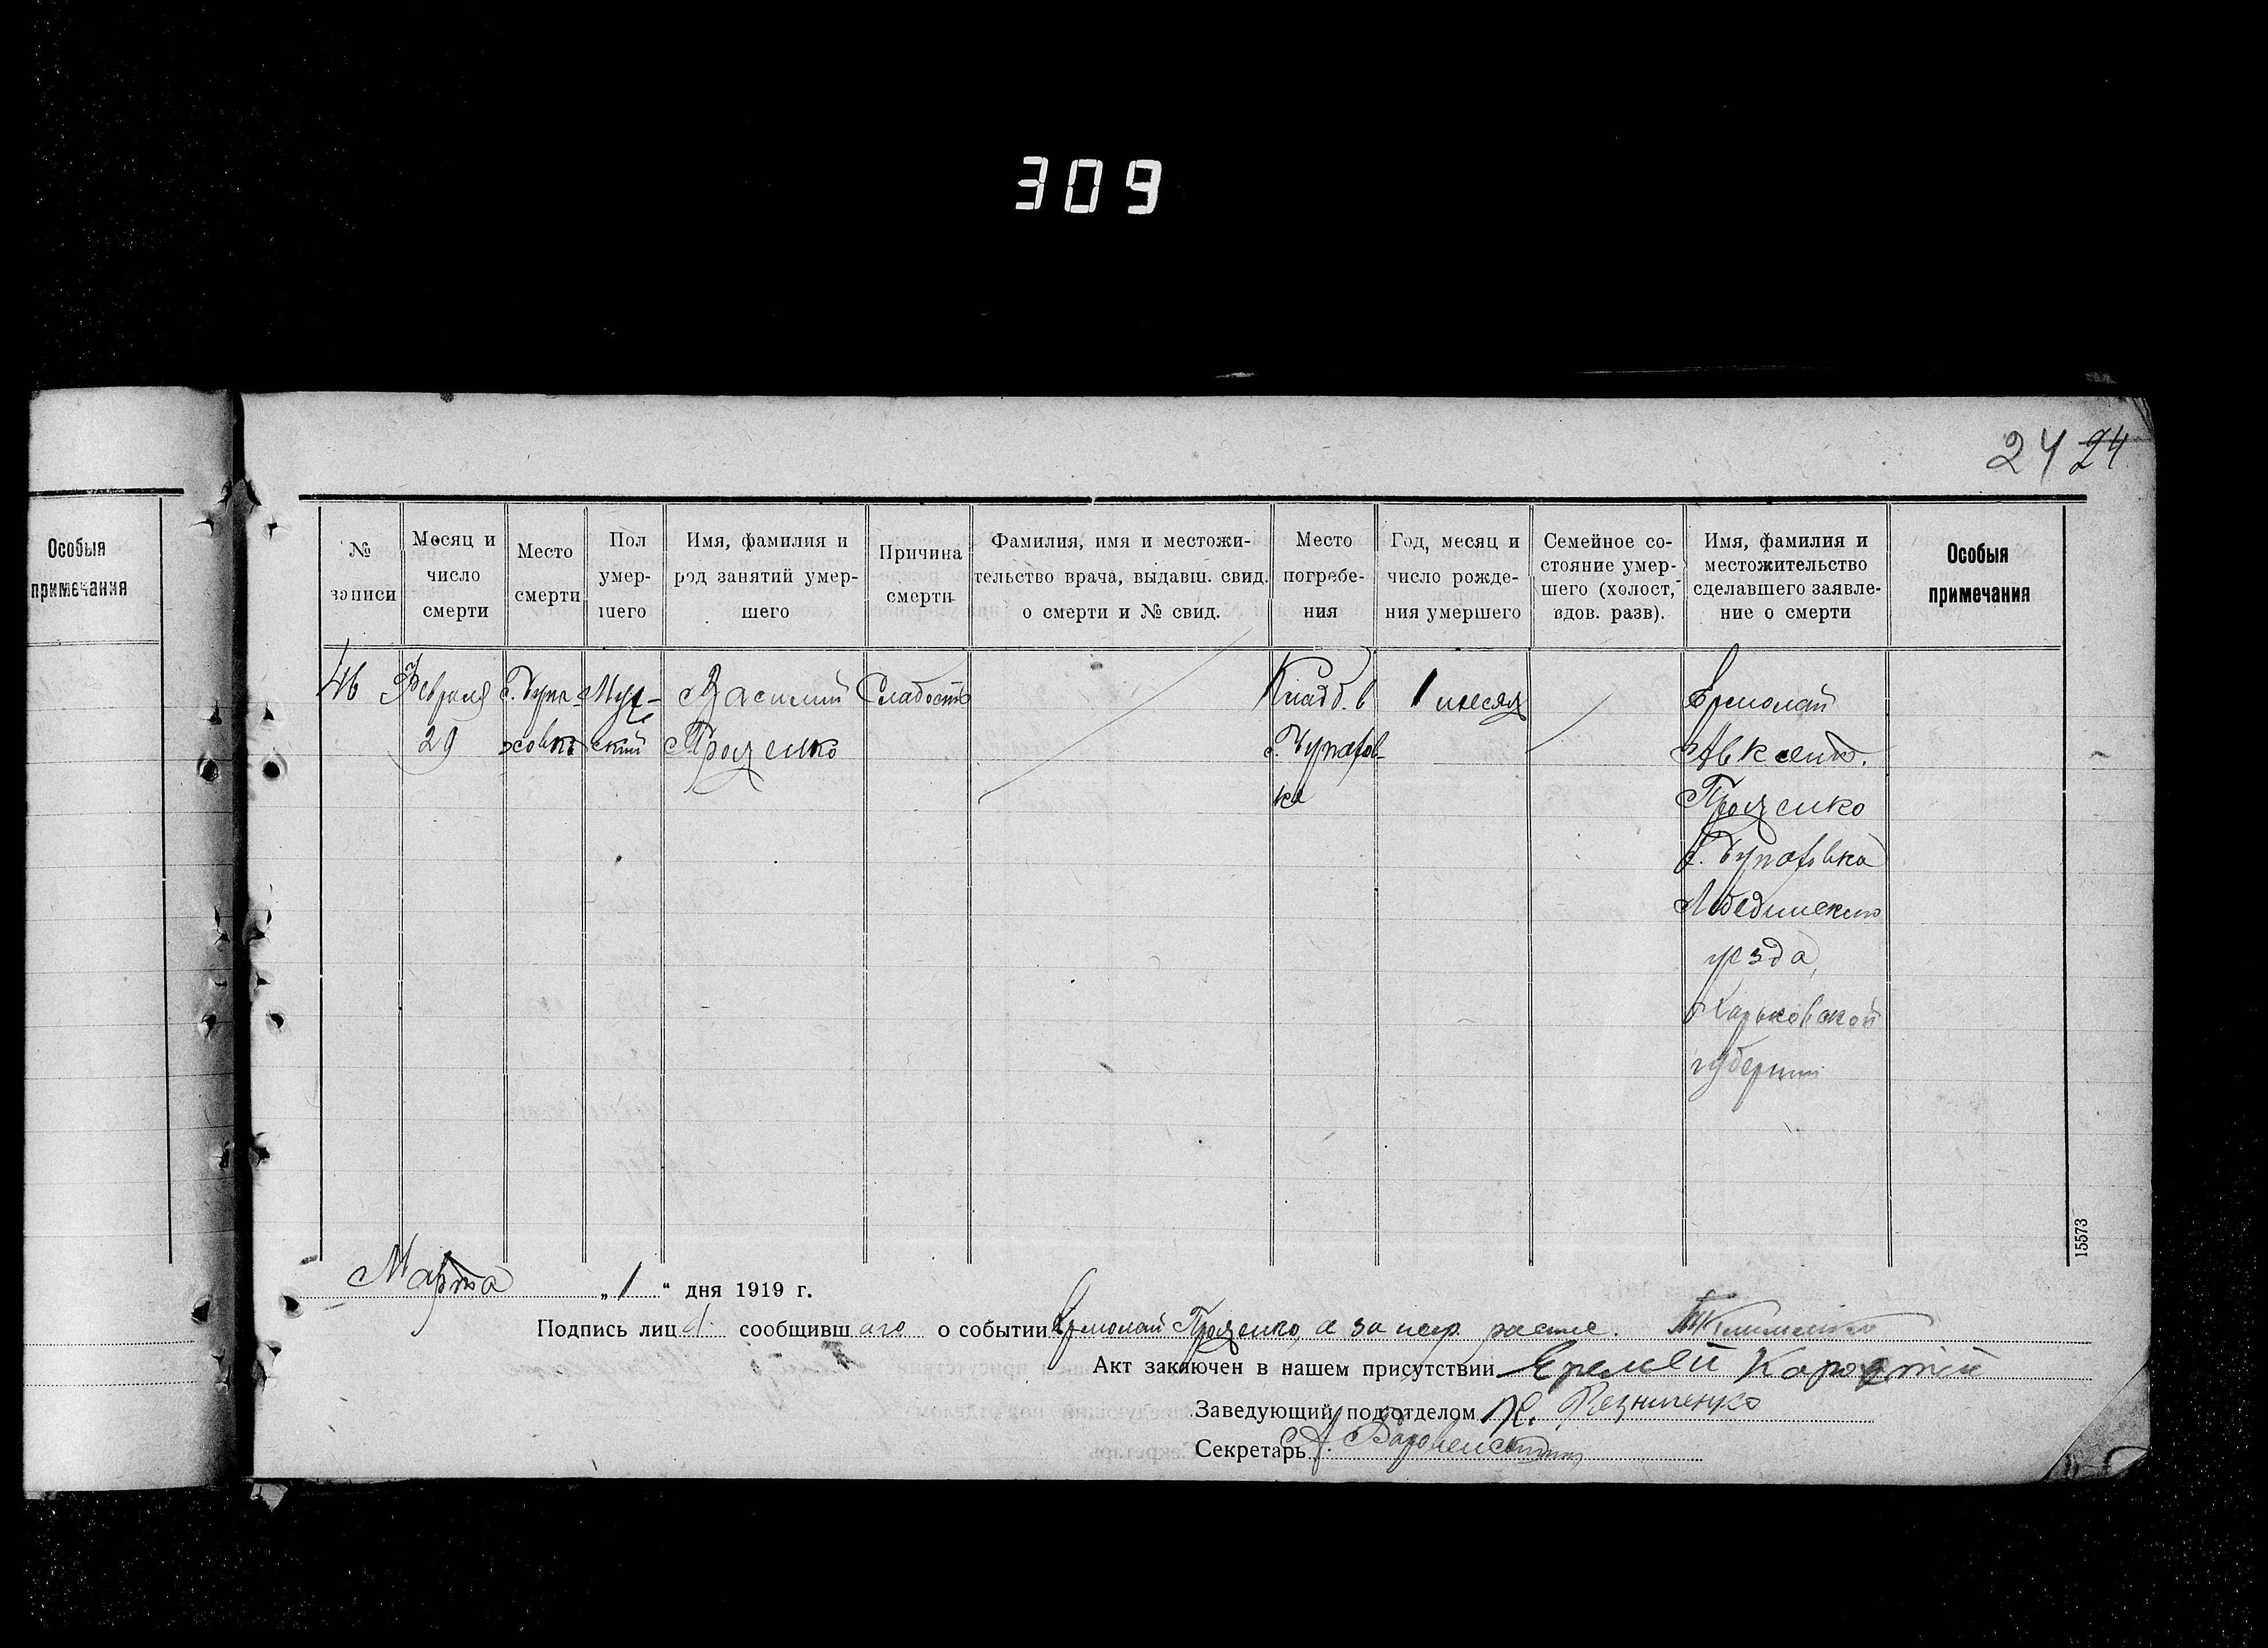 309
24 24
Особыя
примечания
№
записи
Месяц и
число
смерти
Место
смерти
Пол
умер-
шего
Имя, фамилия и
род занятий умер-
шего
Причина
смерти
Фамилия, имя и местожи-
тельство врача, выдавш. свид.
о смерти и № свид.
Место
погребе-
ния
Год, месяц и
число рожде-
ния умершего
Семейное со-
стояние умер-
шего (холост,
вдов. разв).
Имя, фамилия и
местожительство
сделавшего заявле-
ние о смерти
Особыя
примечания
46
Февраля
29
Муж-
ский
Василий
Проценко
Слабость
Кладб. в
1 месяц
Ермолай
Авксент.
Проценко
Лебединского
уезда,
Харьковской
губернии
15573
Марта „1“ дня 1919 г.
Подпись лица сообщившаго о событии Ермолай Проценко, а за негр. распис. Клименко
Акт заключен в нашем присутствии Еремей
Заведующий подотделом Резниченко
Секретарь